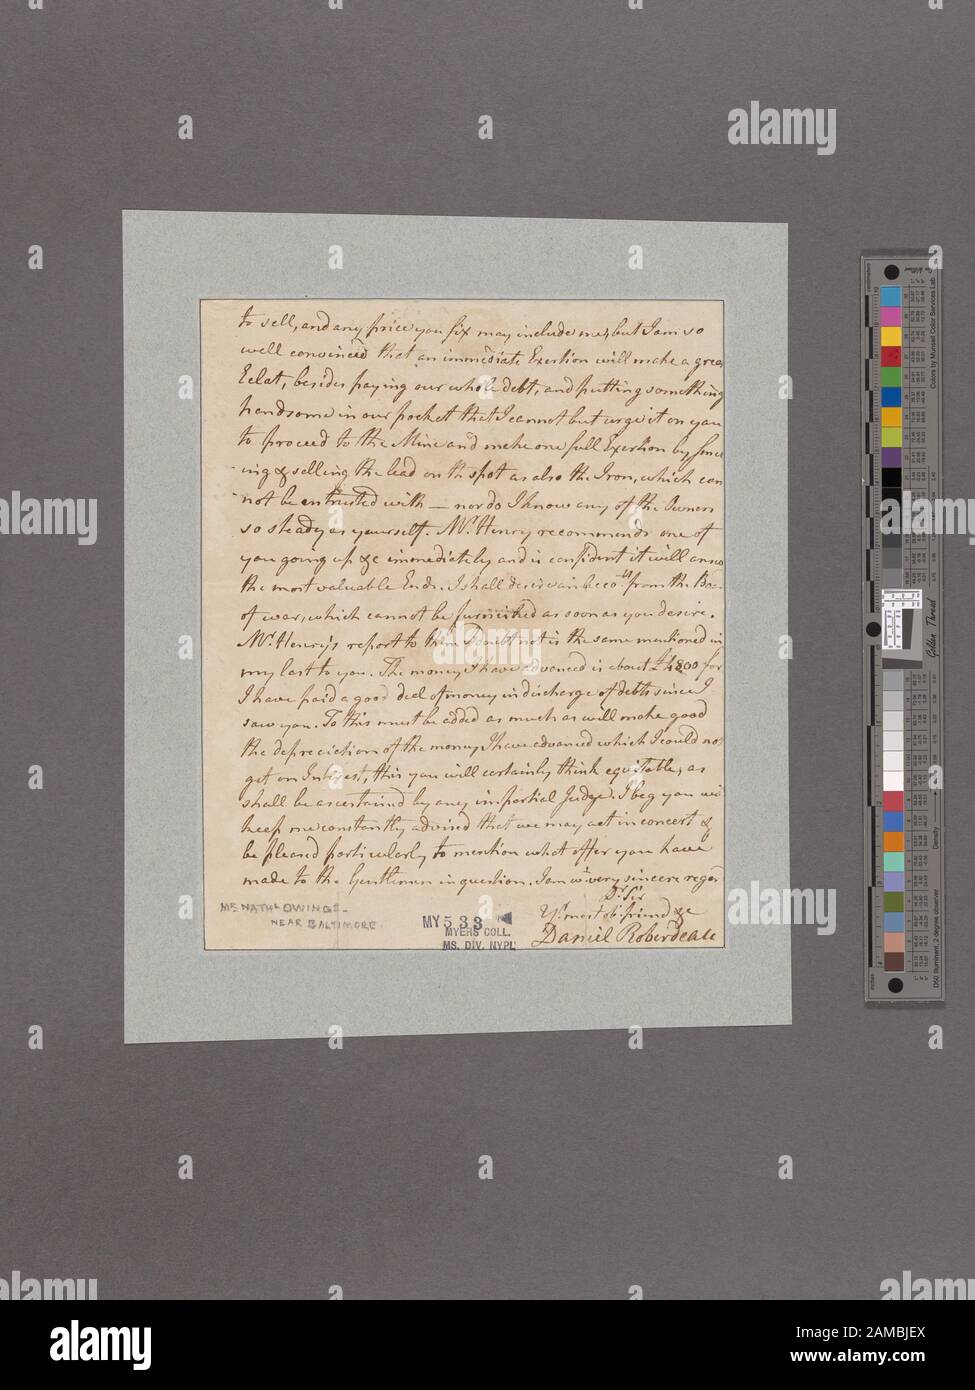 to sell, and any price you fix may include me, but I am so
well convinced that an immediate Exertion will make a grea
Eclat, besides paying our whole debt, and putting something
handsome in our pocket that I cannot but urge it on you
to proceed to the Mine and make one full Exertion by smel
ing & selling the lead on the spot as also the Iron, which can
not be entrusted with — nor do I know any of the Owners
so steady as yourself. Mr Henry recommends one of
you going up &c immediately and is confident it will answ
the most valuable Ends. I shall desire from the Boa
of war, which cannot be furnished as soon as you desire.
Mr Henry's report to them I doubt not is the same mentioned in
my last to you. The money I have advanced is about for
I have paid a good deel of money in discharge of debts since I
saw you. To this must be added as much as will make good
the depreciation of the money I have advanced which I could not
get on Interest, this you will certainly think equitable, as
shall be ascertained by any impartial Judge. I beg you wi
keep me constantly advised that we may act in concert &
be pleased particularly to mention what offer you have
made to the Gentlemen in question. I am wt very sincere regar
Dr Sir
Yr most ob friend &c
Daniel Roberdeau
MR NATHL OWINGS -
NEAR BALTIMORE
MY 533
MYERS COLL.
MS. DIV. NYPL
Colors by Munsell Color Services Lab
Golden Thread
Density
D50 Illuminant, 2 degree observer
a alamy
alamy
Image ID: 2AMBJEX
www.alamy.com